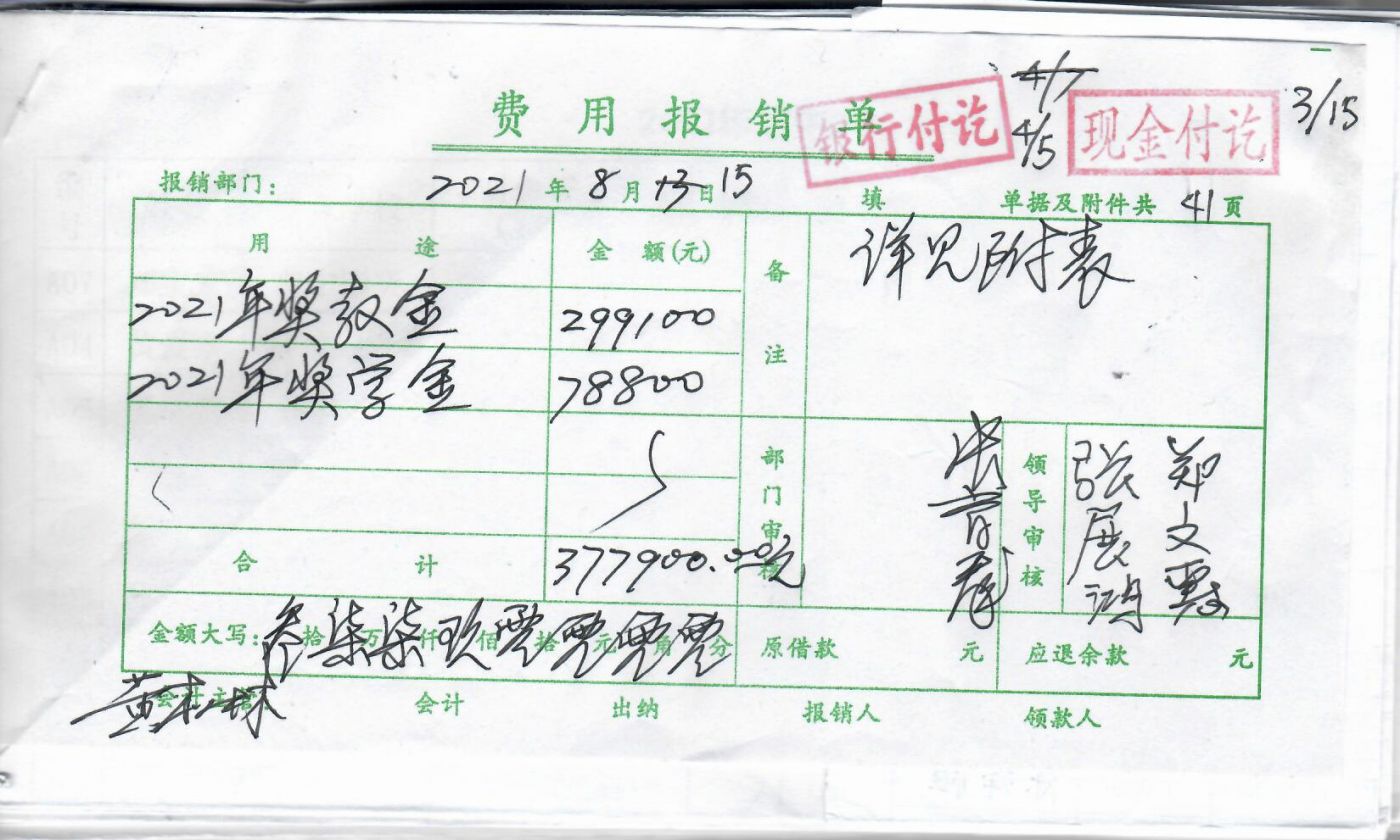 费用报销单
银行付讫
4/7
4/5
现金付讫
3/15
报销部门: 2021年8月13日15 填 单据及附件共41页
用途 金额(元) 备注 详见附表
2021年奖教金 299100
2021年奖学金 78800
合计 377900.00元
部门审核
领导审核 张展鸿 郑文
金额大写: 叁拾柒万柒仟玖佰零拾零元零角零分 原借款 元 应退余款 元
会计主管 会计 出纳 报销人 领款人